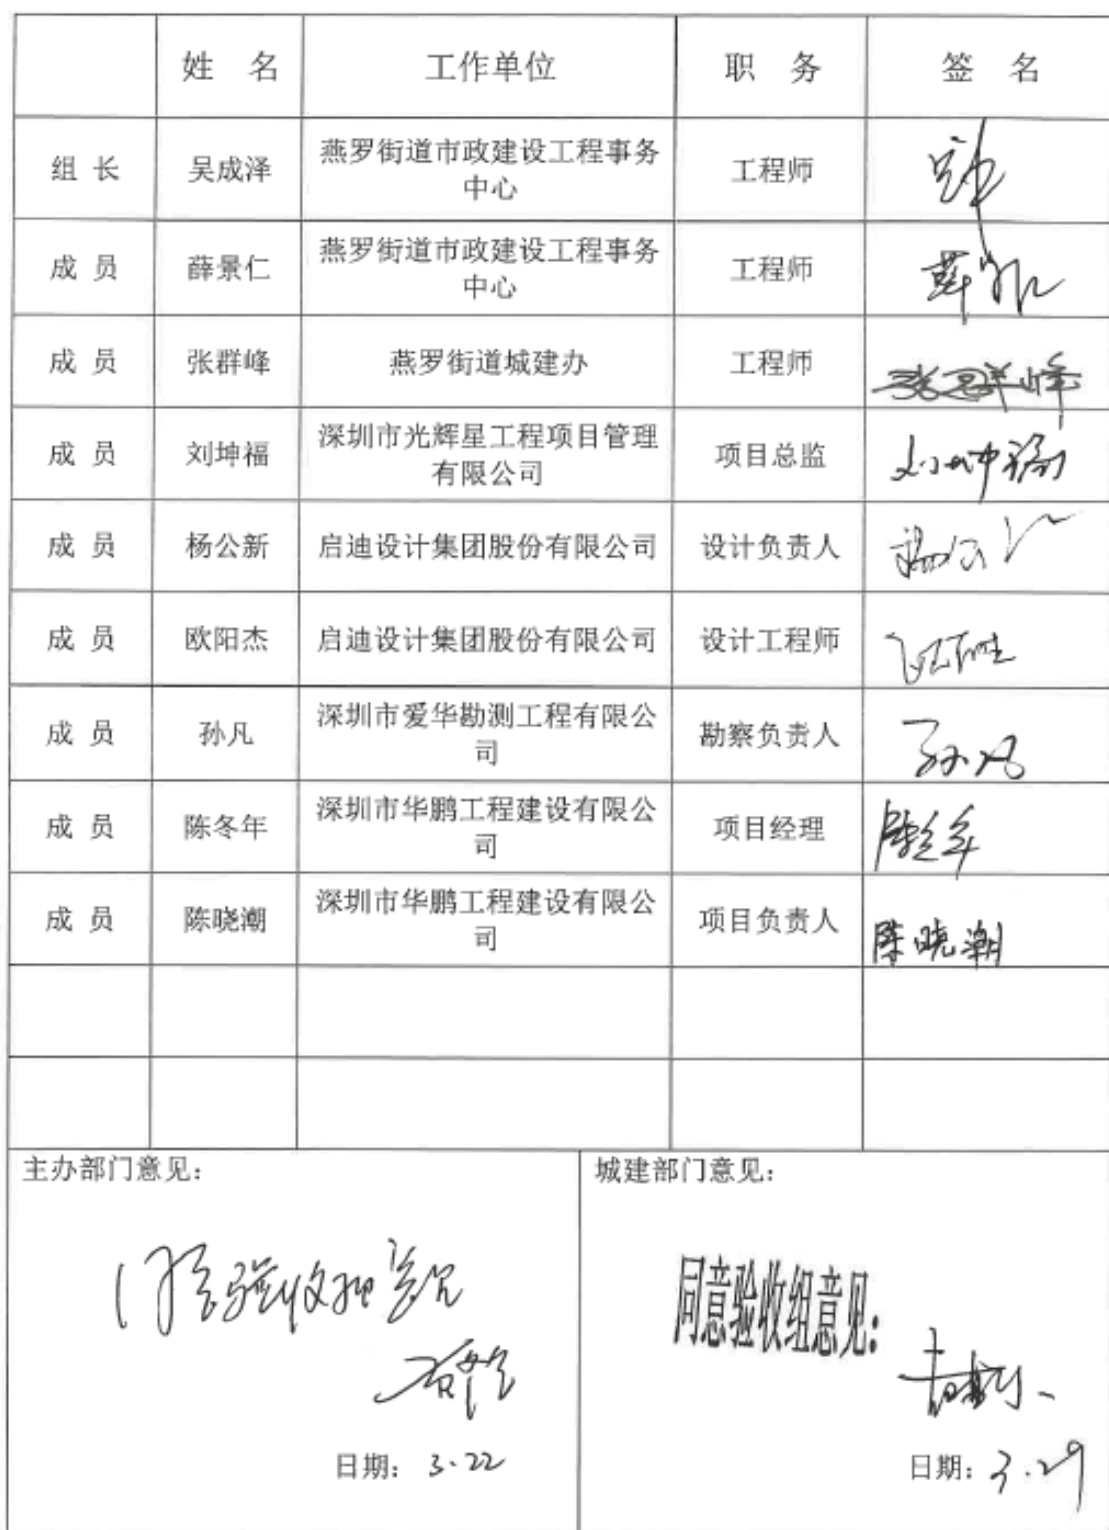 姓 名 工作单位 职 务 签 名
组 长 吴成泽 燕罗街道市政建设工程事务 工程师
中心
成 员 薛景仁 燕罗街道市政建设工程事务 工程师 薛景仁
中心
成 员 张群峰 燕罗街道城建办 工程师 张群峰
成 员 刘坤福 深圳市光辉星工程项目管理 项目总监 刘坤福
有限公司
成 员 杨公新 启迪设计集团股份有限公司 设计负责人 杨公新
成 员 欧阳杰 启迪设计集团股份有限公司 设计工程师
成 员 孙凡 深圳市爱华勘测工程有限公 勘察负责人 孙凡
司
成 员 陈冬年 深圳市华鹏工程建设有限公 项目经理 陈冬年
司
成 员 陈晓潮 深圳市华鹏工程建设有限公 项目负责人 陈晓潮
司
主办部门意见：
同意验收组意见
日期：3.22
城建部门意见：
同意验收组意见：
日期：3.29